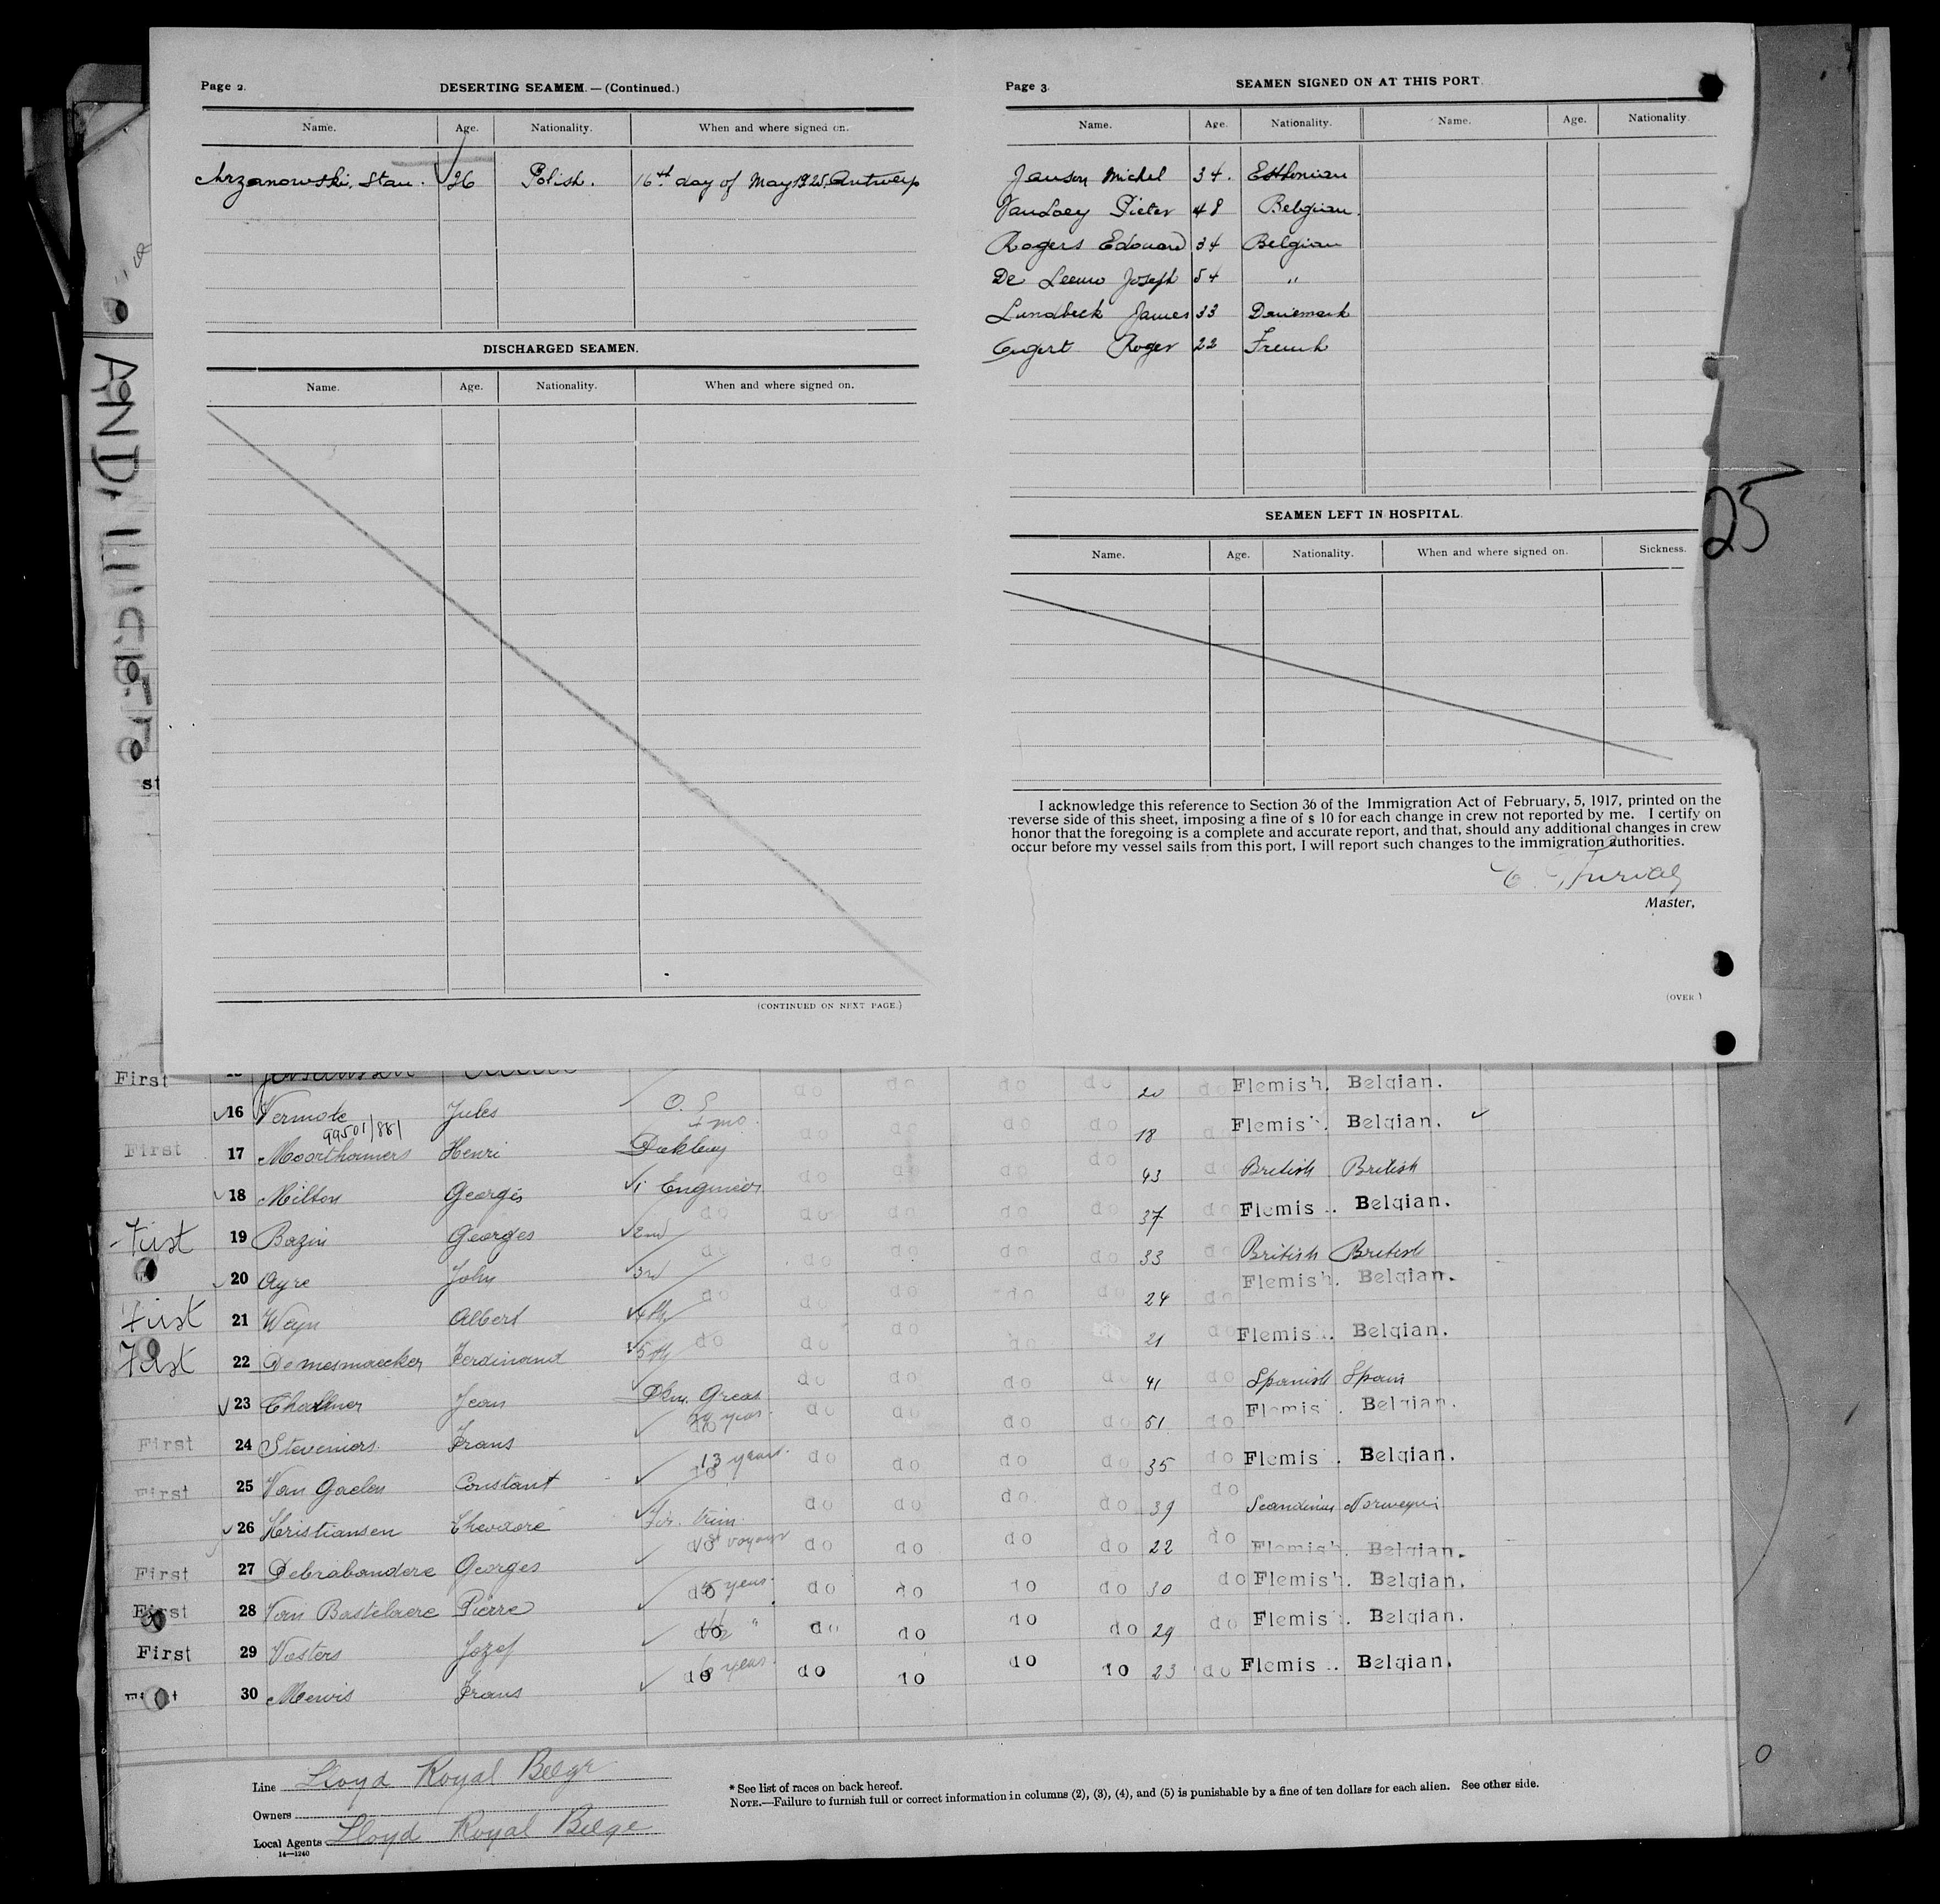 Page 2.
DESERTING SEAMEM. — (Continued.)
Name. Age. Nationality. When and where signed on.
Chrzanowski, Stan. 26 Polish. 16th day of May 1925. Antwerp
DISCHARGED SEAMEN.
Name. Age. Nationality. When and where signed on.
(CONTINUED ON NEXT PAGE.)
Page 3.
SEAMEN SIGNED ON AT THIS PORT.
Name. Age. Nationality. Name. Age. Nationality
Janson Michel 34. Esthonian
VanLoey Pieter 48 Belgian.
Rogers Edouard 34 Belgian
De Leeuw Joseph 54 "
Lundbeck James 33 Daniemark
Engert Roger 22 French
SEAMEN LEFT IN HOSPITAL.
Name. Age. Nationality. When and where signed on. Sickness.
I acknowledge this reference to Section 36 of the Immigration Act of February, 5, 1917, printed on the
reverse side of this sheet, imposing a fine of $ 10 for each change in crew not reported by me. I certify on
honor that the foregoing is a complete and accurate report, and that, should any additional changes in crew
occur before my vessel sails from this port, I will report such changes to the immigration authorities.
Master,
(OVER)
25
AND
First do do do do 20 do Flemish. Belgian.
16 Vermote Jules O. S. do do do do 18 do Flemish. Belgian.
99501/881
First 17 Moorthamers Henri Donkey do do do do 43 do British British
18 Milton Georges 1 Engineer do do do do 37 do Flemis . Belgian.
First 19 Bazin Georges 2nd do do do do do 33 do British British
20 Ayre John 3rd do do do do do 24 do Flemish. Belgian.
First 21 Weyn Albert 4th do do do do 21 do Flemis . Belgian.
First 22 Demesmaecker Ferdinand 5th do do do do 41 do Spanish Spain
23 Jean Greas. do do do do 51 do Flemis . Belgian.
First 24 Steveniers Frans do 13 years. do do do do 35 do Flemis . Belgian.
First 25 Van Gaelen Constant do do do do do 39 do Norwegi
26 Kristiansen Theodore trim. do do do do 22 do Flemish. Belgian.
First 27 Debrabandere Georges do voyage do do do do 30 do Flemish. Belgian.
First 28 Van Bastelaere Pierre do years do do do do 29 do Flemish. Belgian.
First 29 Vesters Jozef do " do do do do 23 do Flemis . Belgian.
30 Mewis Frans do 6 years.
Line Lloyd Royal Belge
Owners
Local Agents Lloyd Royal Belge
14—1240
* See list of races on back hereof.
NOTE.—Failure to furnish full or correct information in columns (2), (3), (4), and (5) is punishable by a fine of ten dollars for each alien. See other side.